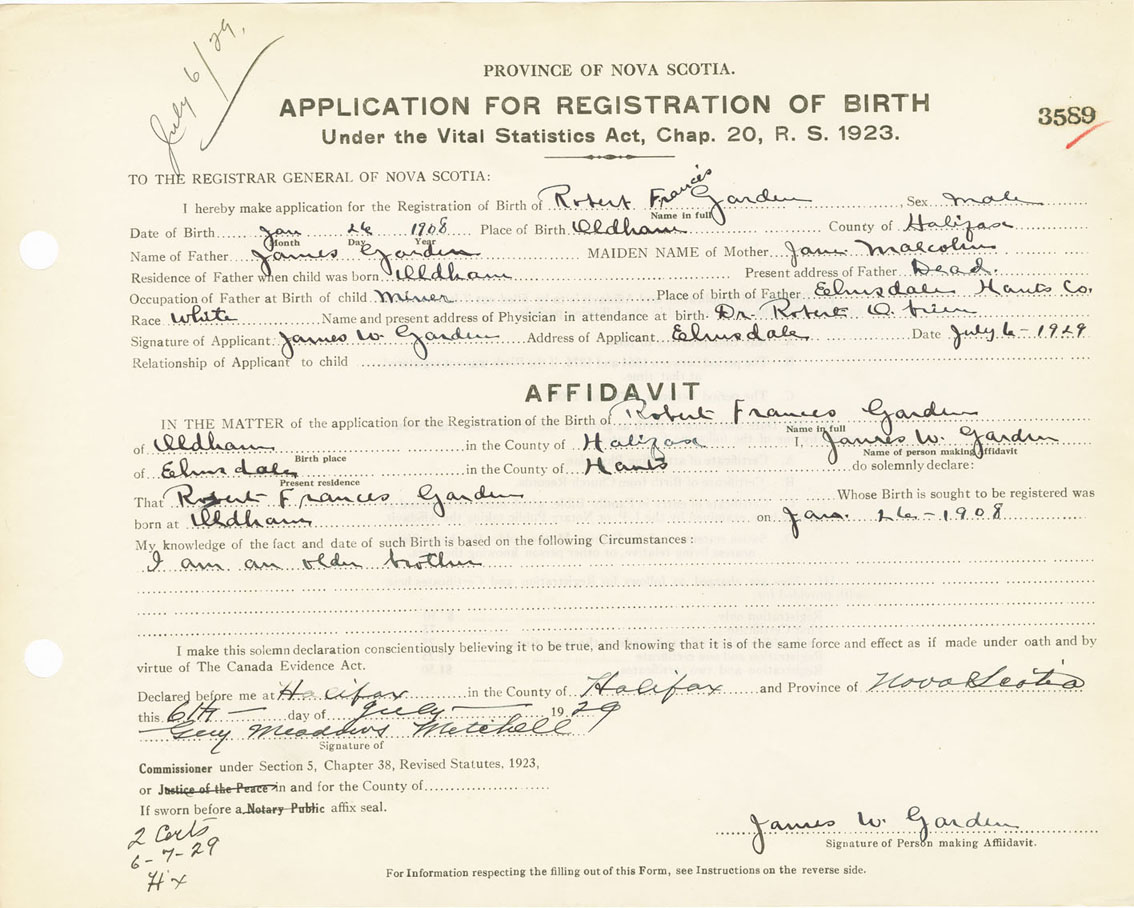 July 6/29,
PROVINCE OF NOVA SCOTIA.
APPLICATION FOR REGISTRATION OF BIRTH
3589
Under the Vital Statistics Act, Chap. 20, R. S. 1923.
TO THE REGISTRAR GENERAL OF NOVA SCOTIA:
I hereby make application for the Registration of Birth of Robert Francis Garden Sex Male
Name in full
Date of Birth Jan 26 1908 Place of Birth Oldham County of Halifax
Month Day Year
Name of Father James Garden MAIDEN NAME of Mother Jane Malcolm
Residence of Father when child was born Oldham Present address of Father Dead.
Occupation of Father at Birth of child Miner Place of birth of Father Elmsdale Hants Co.
Race White Name and present address of Physician in attendance at birth Dr. Robert O. brien
Signature of Applicant James W Garden Address of Applicant Elmsdale Date July 6 - 1929
Relationship of Applicant to child
AFFIDAVIT
IN THE MATTER of the application for the Registration of the Birth of Robert Frances Garden
Name in full
of Oldham in the County of Halifax I, James W. Garden
Birth place Name of person making Affidavit
of Elmsdale in the County of Hants do solemnly declare:
Present residence
That Robert Frances Garden Whose Birth is sought to be registered was
born at Oldham on Jan. 26 - 1908
My knowledge of the fact and date of such Birth is based on the following Circumstances:
I am an older brother
I make this solemn declaration conscientiously believing it to be true, and knowing that it is of the same force and effect as if made under oath and by
virtue of The Canada Evidence Act.
Declared before me at Halifax in the County of Halifax and Province of Nova Scotia
this 6th day of July 1929
Guy Meadows Mitchell
Signature of
Commissioner under Section 5, Chapter 38, Revised Statutes, 1923,
or Justice of the Peace in and for the County of
If sworn before a Notary Public affix seal.
2 Certs
6-7-29
Hx
James W. Garden
Signature of Person making Affidavit.
For Information respecting the filling out of this Form, see Instructions on the reverse side.